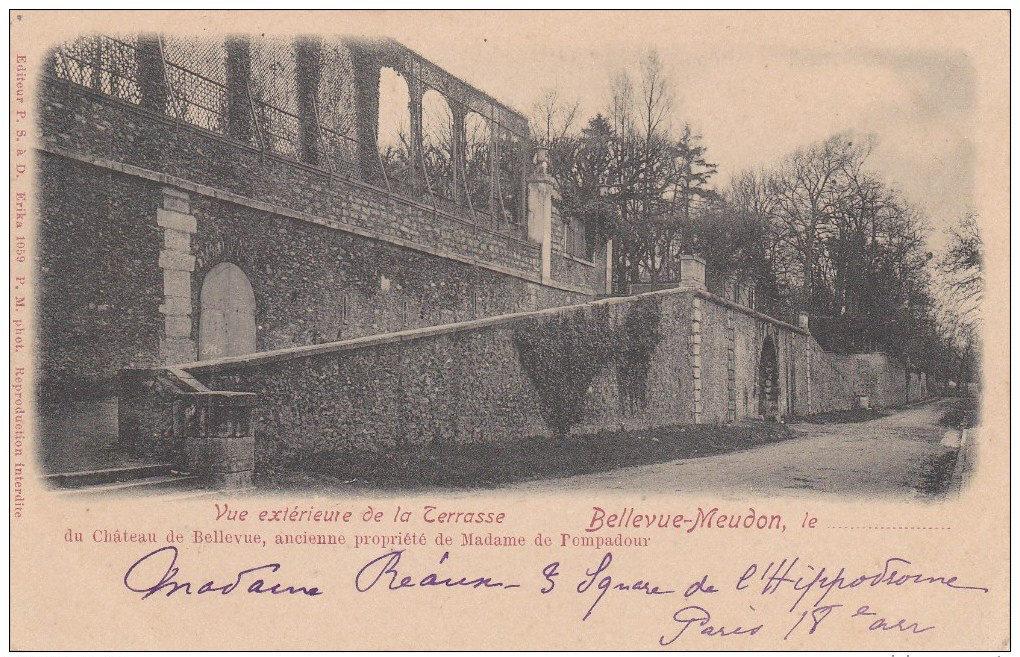 Editeur P. S. à D. Erika 1059 P. M. phot. Reproduction interdite
Vue extérieure de la Terrasse
Bellevue-Meudon, le
du Château de Bellevue, ancienne propriété de Madame de Pompadour
Madame Réaux - 3 Square de l'Hippodrome
Paris 18e arr